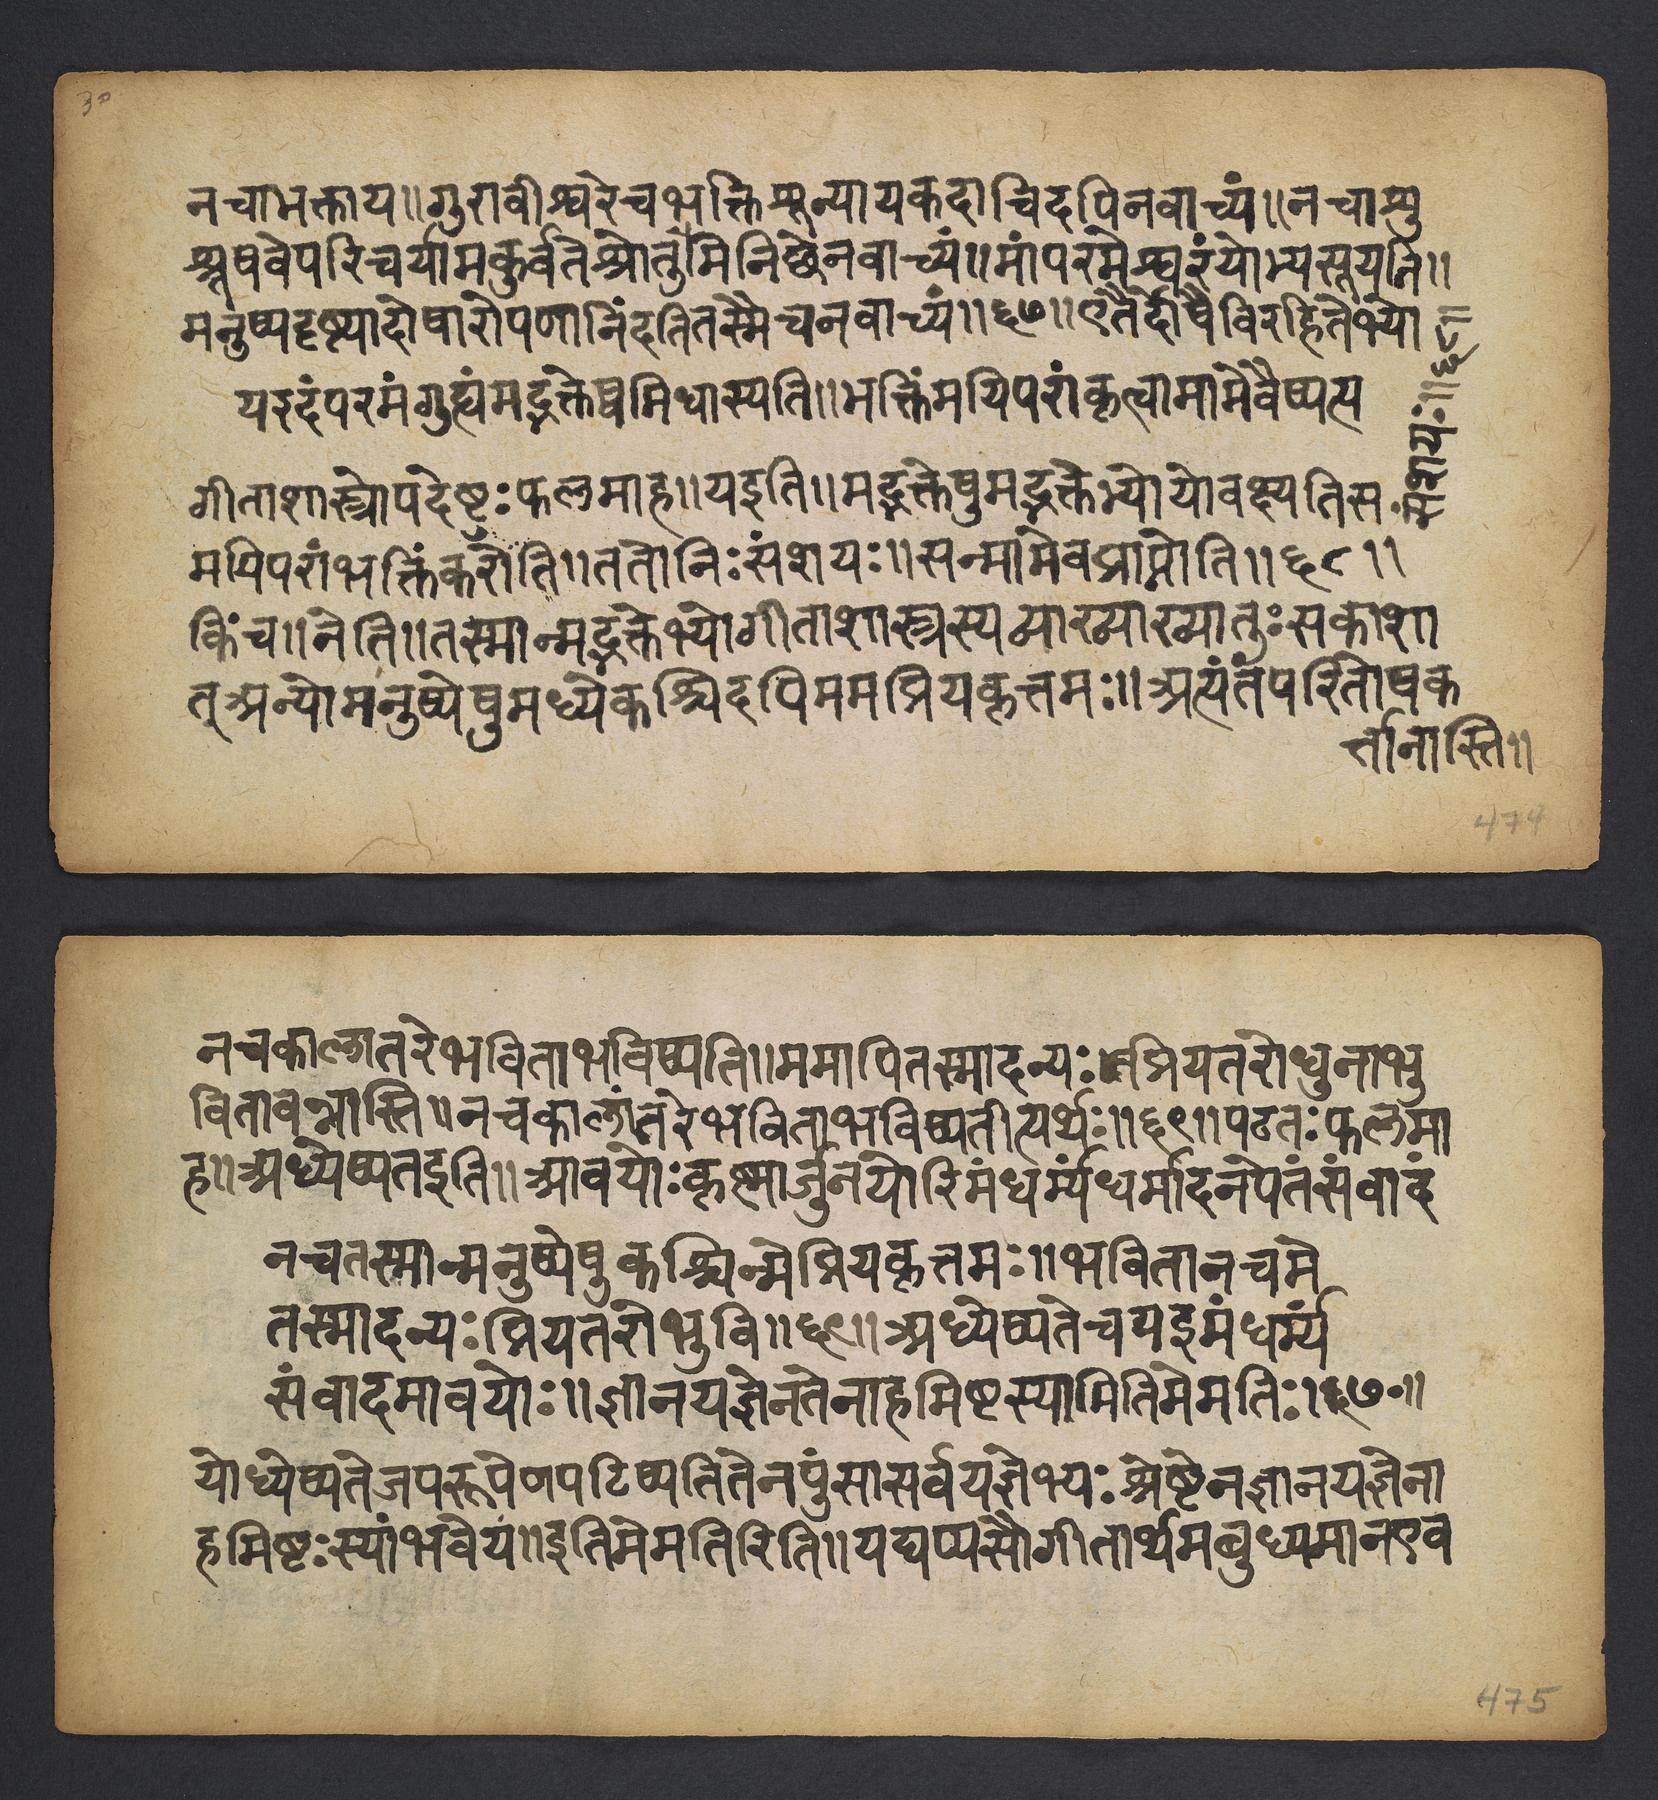 ३०
नचाभक्ताय॥गुरावीश्वरेचभक्तिशून्यायकदाचिदपिनवाच्यं॥नचाशु
श्रूषवेपरिचर्यामकुर्वतेश्रोतुमनिच्छेनवाच्यं॥मांपरमेश्वरंयोभ्यसूयति॥
मनुष्यदृष्ट्यादोषारोपणानिंदतितस्मैचनवाच्यं॥६७॥एतैर्दोषैविरहितेभ्यो
यइदंपरमंगुह्यंमद्भक्तेष्वभिधास्यति॥भक्तिंमयिपरांकृत्वामामेवैष्यत्य
संशयः॥६८॥
गीताशास्त्रोपदेष्टुःफलमाह॥यइति॥मद्भक्तेषुमद्भक्तेभ्योयोवक्ष्यतिस
मयिपरांभक्तिंकरोति॥ततोनिःसंशयः॥सन्मामेवप्राप्नोति॥६८॥
किंच॥नेति॥तस्मान्मद्भक्तेभ्योगीताशास्त्रस्यव्याख्याख्यातुःसकाशा
त्अन्योमनुष्येषुमध्येकश्चिदपिममप्रियकृत्तमः॥अत्यंतंपरितोषक
र्त्तानास्ति॥
474
नचकालांतरेभविताभविष्यति॥ममापितस्मादन्यःप्रियतरोधुनाभु
वितावन्नास्ति॥नचकालांतरेभविताभविष्यतीत्यर्थः॥६९॥पठतःफलमा
ह॥अध्येष्यतइति॥आवयोःकृष्णार्जुनयोरिमंधर्म्यंधर्मादनपेतंसंवादं
नचतस्मान्मनुष्येषुकश्चिन्मेप्रियकृत्तमः॥भवितानचमे
तस्मादन्यःप्रियतरोभुवि॥६९॥अध्येष्यतेचयइमंधर्म्यं
संवादमावयोः॥ज्ञानयज्ञेनतेनाहमिष्टस्यामितिमेमतिः।७०॥
योध्येष्यतेजपरूपेणपठिष्यतितेनपुंसासर्वयज्ञेभ्यःश्रेष्टेनज्ञानयज्ञेना
हमिष्टःस्यांभवेयं॥इतिमेमतिरिति॥यद्यप्यसौगीतार्थमबुध्यमानएव
475